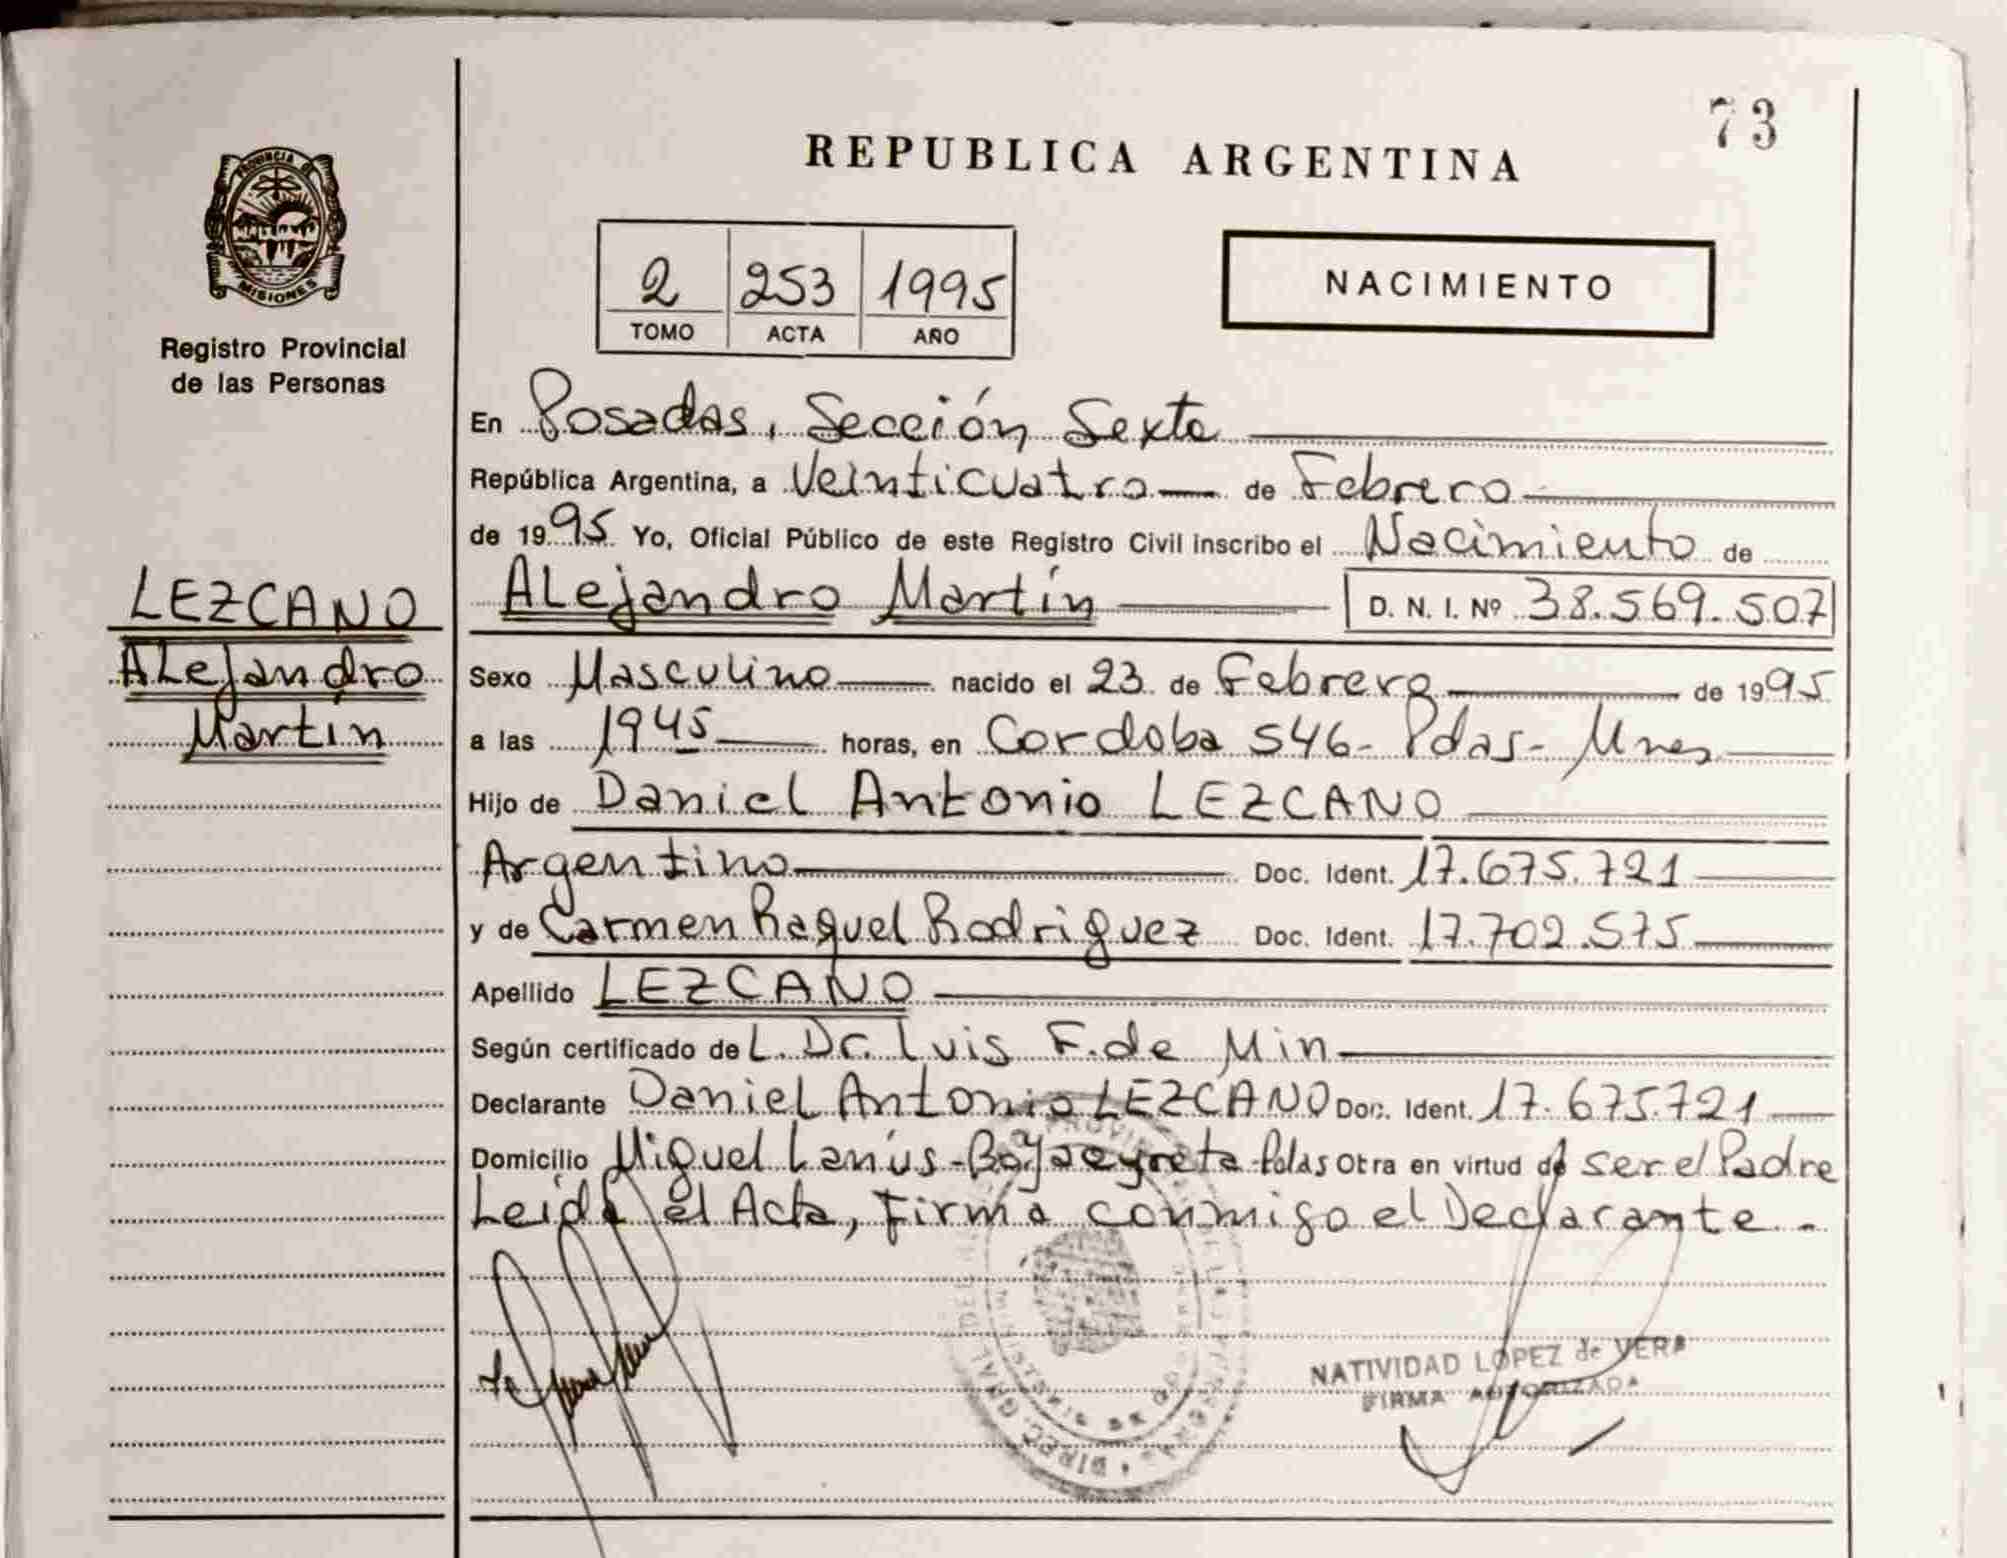 73
REPUBLICA ARGENTINA
PROVINCIA DE
MISIONES
Registro Provincial
de las Personas
2 253 1995
TOMO ACTA AÑO
NACIMIENTO
En Posadas, Sección Sexta
República Argentina, a Veinticuatro de Febrero
de 1995 Yo, Oficial Público de este Registro Civil inscribo el Nacimiento de
LEZCANO
Alejandro
Martín
Alejandro Martín D. N. I. Nº 38.569.507
Sexo Masculino nacido el 23 de Febrero de 1995
a las 1945 horas, en Cordoba 546- Pdas- Mnes
Hijo de Daniel Antonio LEZCANO
Argentino Doc. Ident. 17.675.721
y de Carmen Raquel Rodriguez Doc. Ident. 17.702.575
Apellido LEZCANO
Según certificado de L. Dr. Luis F. de Min
Declarante Daniel Antonio LEZCANO Doc. Ident. 17.675.721
Domicilio Miguel Lanús- Otra en virtud de ser el Padre
Leida el Acta, Firma conmigo el Declarante.-
NATIVIDAD LOPEZ de VERA
FIRMA AUTORIZADA